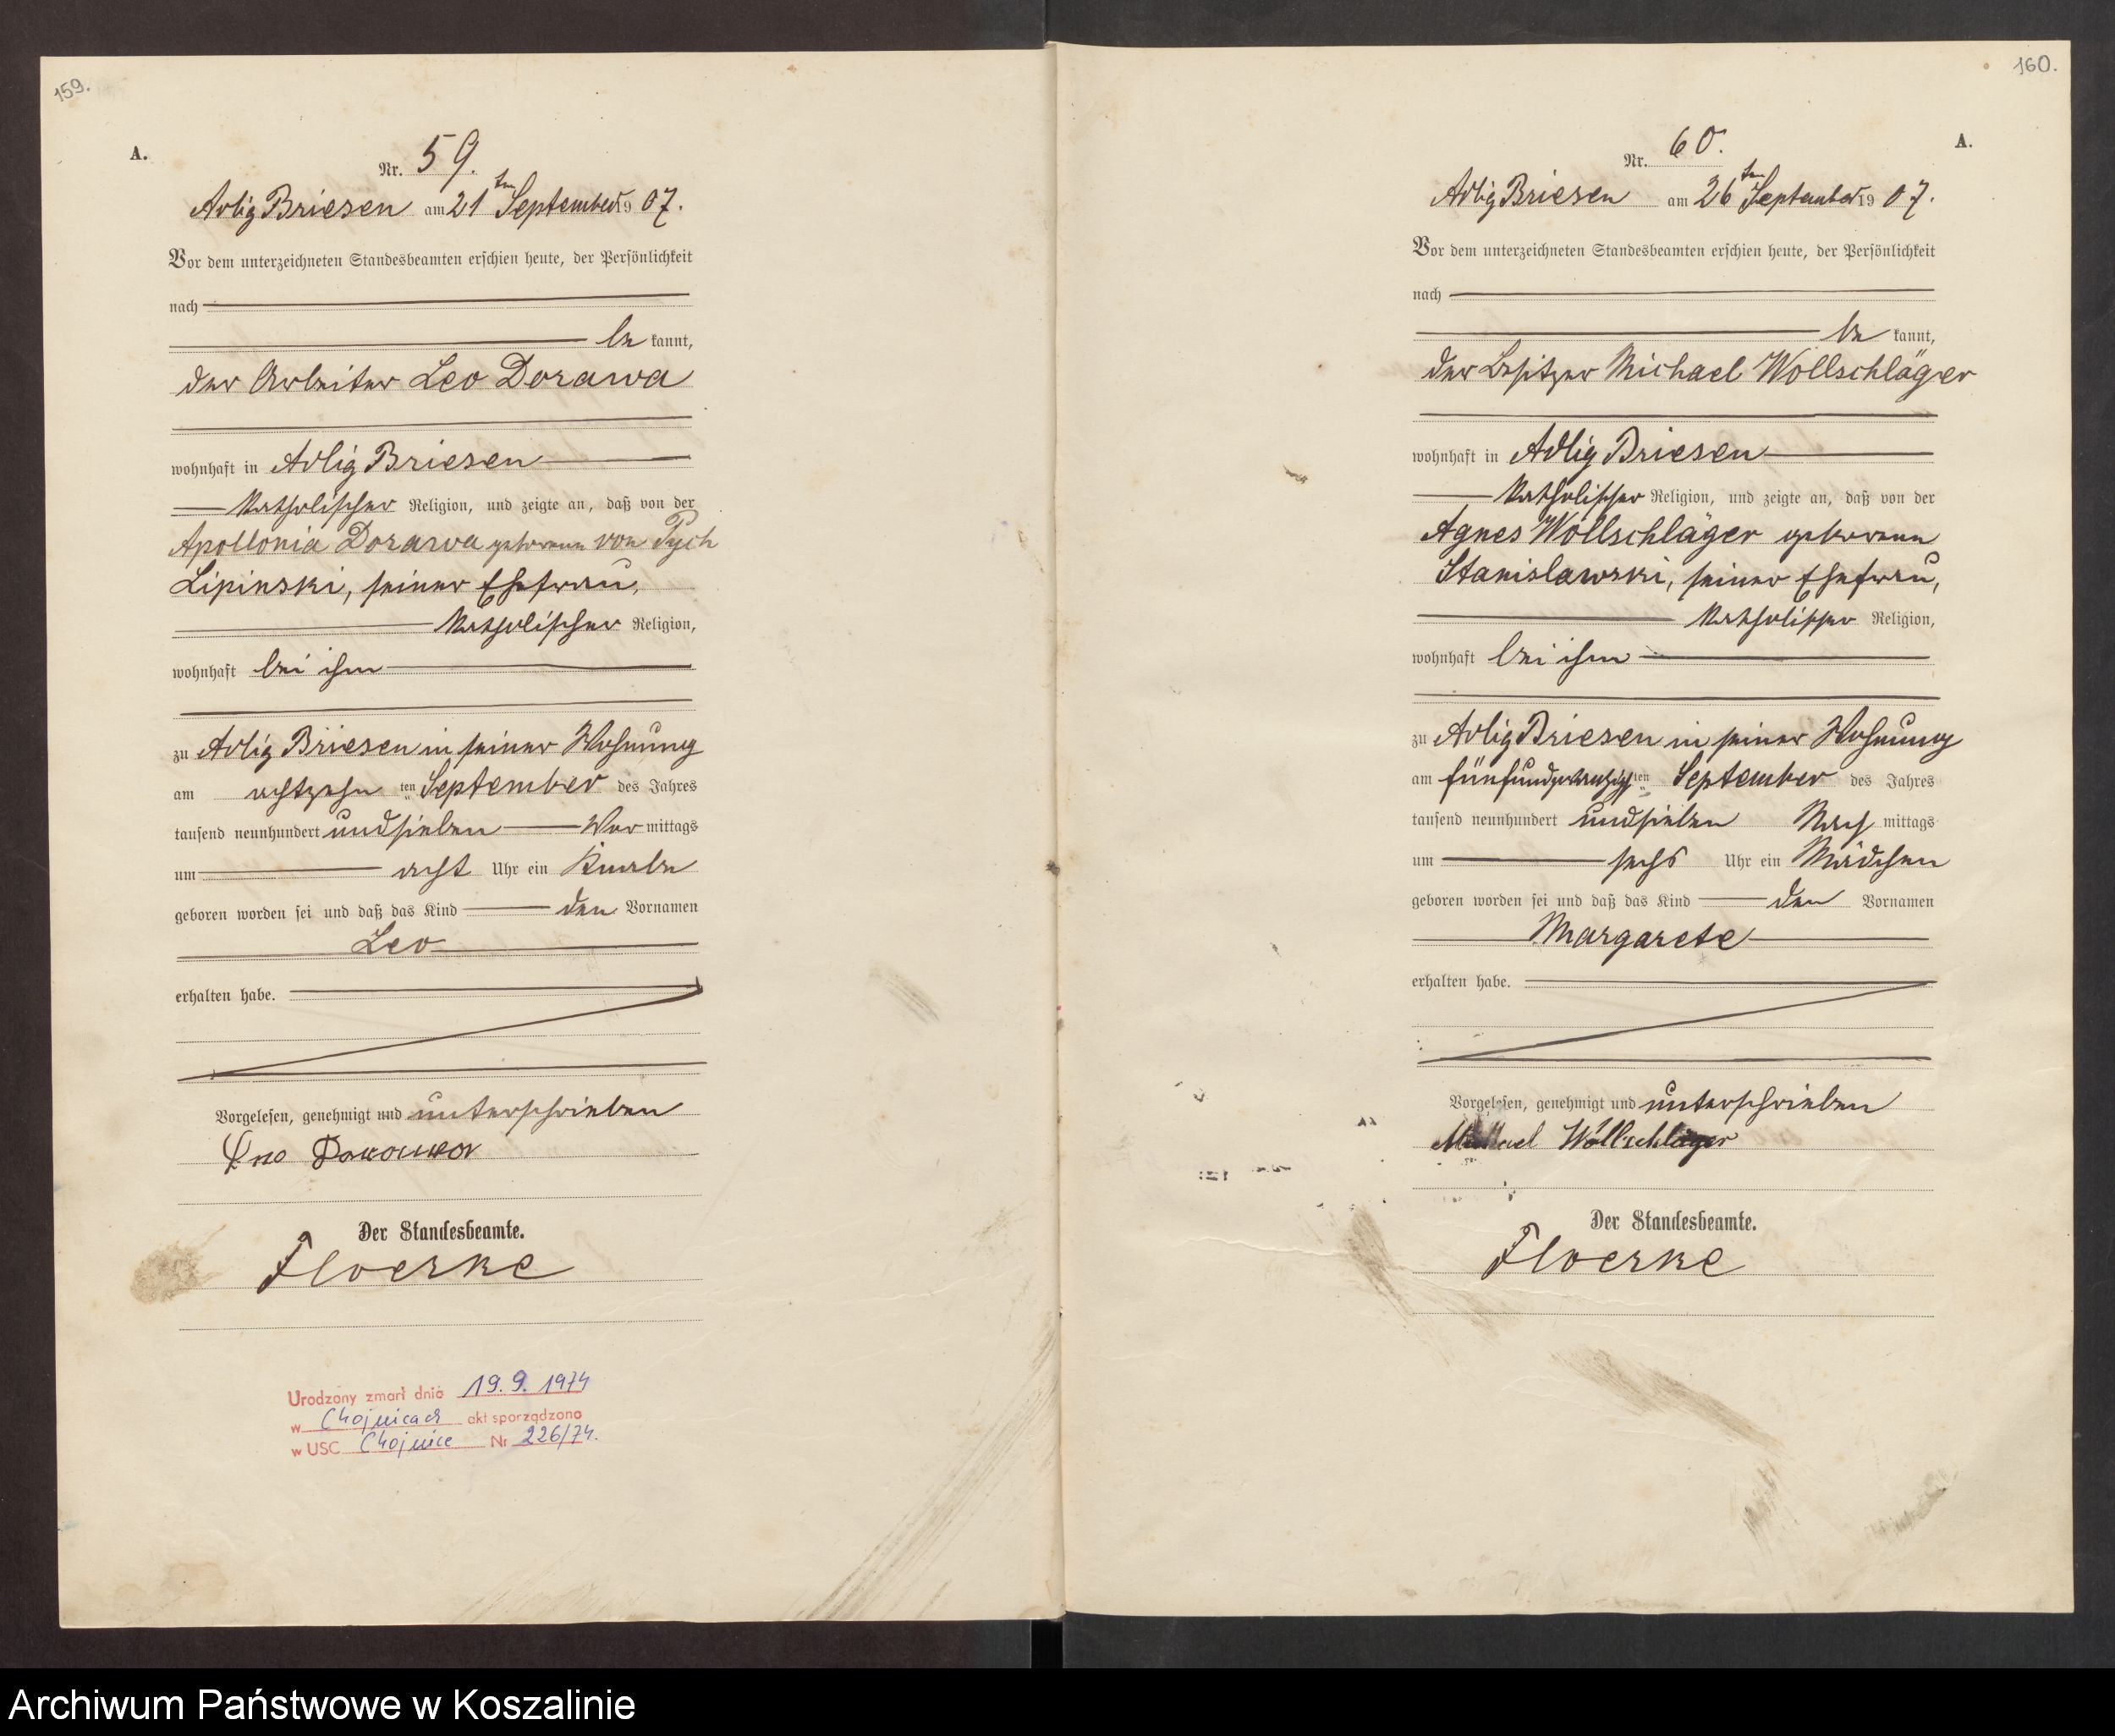 159.
A.
Nr. 59.
Adlig Briesen am 21ten September 1907.
Vor dem unterzeichneten Standesbeamten erschien heute, der Persönlichkeit
nach
be kannt,
der Arbeiter Leo Dorawa
wohnhaft in Adlig Briesen
katholischer Religion, und zeigte an, daß von der
Apollonia Dorawa geborenen von Pych
Lipinski, seiner Ehefrau,
katholischer Religion,
wohnhaft bei ihm
zu Adlig Briesen in seiner Wohnung
am achtzehn ten September des Jahres
tausend neunhundert und sieben Vor mittags
um acht Uhr ein Knabe
geboren worden sei und daß das Kind den Vornamen
Leo
erhalten habe.
Vorgelesen, genehmigt und unterschrieben
Leo Dorawa
Der Standesbeamte.
Floerke
Urodzony zmarł dnia 19.9.1974
w Chojnicach akt sporządzono
w USC Chojnice Nr 226/74.
160.
A.
Nr. 60.
Adlig Briesen am 26ten September 1907.
Vor dem unterzeichneten Standesbeamten erschien heute, der Persönlichkeit
nach
be kannt,
der Besitzer Michael Wollschläger
wohnhaft in Adlig Briesen
katholischer Religion, und zeigte an, daß von der
Agnes Wollschläger geborenen
Stanislawski, seiner Ehefrau,
katholischer Religion,
wohnhaft bei ihm
zu Adlig Briesen in seiner Wohnung
am fünfundzwanzigsten September des Jahres
tausend neunhundert und sieben Nach mittags
um sechs Uhr ein Mädchen
geboren worden sei und daß das Kind den Vornamen
Margarete
erhalten habe.
Vorgelesen, genehmigt und unterschrieben
Michael Wollschläger
Der Standesbeamte.
Floerke
Archiwum Państwowe w Koszalinie